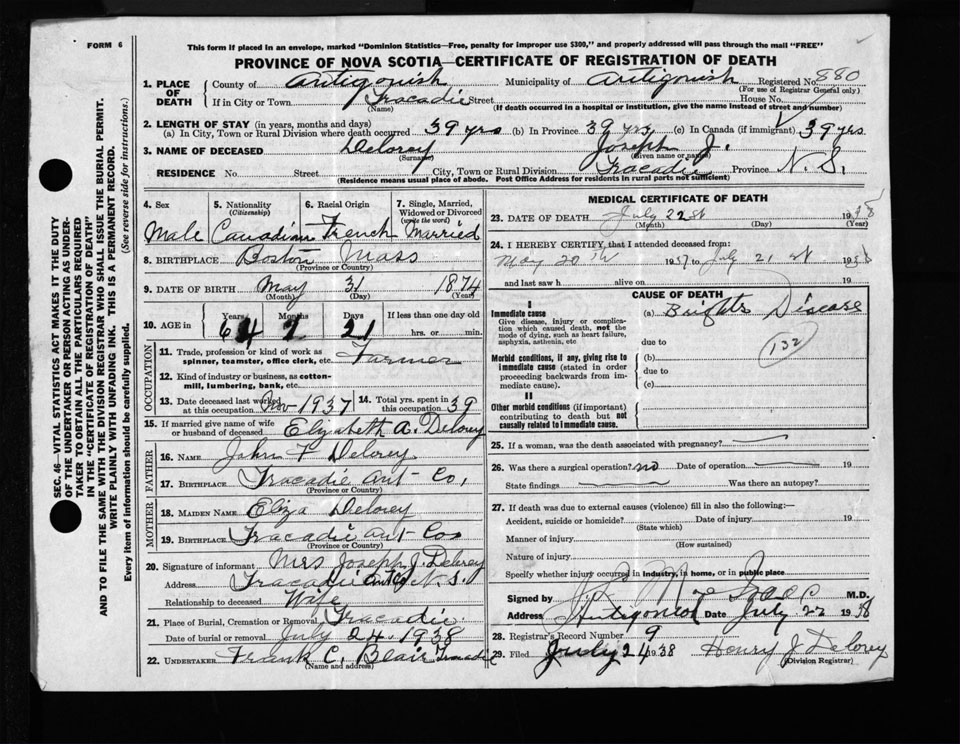 FORM 6
This form if placed in an envelope, marked "Dominion Statistics—Free, penalty for improper use $300," and properly addressed will pass through the mail "FREE"
PROVINCE OF NOVA SCOTIA—CERTIFICATE OF REGISTRATION OF DEATH
1. PLACE OF DEATH County of Antigonish Municipality of Antigonish Registered No. 880
(For use of Registrar General only)
If in City or Town Tracadie Street House No.
(Name) (If death occurred in a hospital or institution, give the name instead of street and number)
2. LENGTH OF STAY (in years, months and days)
(a) In City, Town or Rural Division where death occurred 39 yrs (b) In Province 39 yrs (c) In Canada (if immigrant) 39 yrs
3. NAME OF DECEASED Delorey Joseph J.
(Surname) (Given name or names)
RESIDENCE No. Street City, Town or Rural Division Tracadie Province N.S.
(Residence means usual place of abode. Post Office Address for residents in rural parts not sufficient)
SEC. 46—VITAL STATISTICS ACT MAKES IT THE DUTY
OF THE UNDERTAKER OR PERSON ACTING AS UNDER-
TAKER TO OBTAIN ALL THE PARTICULARS REQUIRED
IN THE "CERTIFICATE OF REGISTRATION OF DEATH"
AND TO FILE THE SAME WITH THE DIVISION REGISTRAR WHO SHALL ISSUE THE BURIAL PERMIT.
WRITE PLAINLY WITH UNFADING INK. THIS IS A PERMANENT RECORD.
Every item of information should be carefully supplied. (See reverse side for instructions.)
4. Sex 5. Nationality (Citizenship) 6. Racial Origin 7. Single, Married, Widowed or Divorced (write the word)
Male Canadian French Married
8. BIRTHPLACE Boston Mass
(Province or Country)
9. DATE OF BIRTH May 31 1874
(Month) (Day) (Year)
10. AGE in Years Months Days If less than one day old
64 2 21 hrs. or min.
OCCUPATION
11. Trade, profession or kind of work as spinner, teamster, office clerk, etc. Farmer
12. Kind of industry or business, as cotton-mill, lumbering, bank, etc.
13. Date deceased last worked at this occupation Nov 1937 14. Total yrs. spent in this occupation 39
15. If married give name of wife or husband of deceased Elizabeth A. Delorey
FATHER
16. Name John F Delorey
17. Birthplace Tracadie Ant Co,
(Province or Country)
MOTHER
18. MAIDEN NAME Eliza Delorey
19. BIRTHPLACE Tracadie Ant Co
(Province or Country)
20. Signature of informant Mrs Joseph J. Delorey
Address Tracadie N.S.
Relationship to deceased Wife
21. Place of Burial, Cremation or Removal Tracadie
Date of burial or removal July 24 1938
22. UNDERTAKER Frank C. Blair Tracadie
(Name and address)
MEDICAL CERTIFICATE OF DEATH
23. DATE OF DEATH July 22 1938
(Month) (Day) (Year)
24. I HEREBY CERTIFY, that I attended deceased from:
May 20th 1937 to July 21st 1938
and last saw h alive on 19
CAUSE OF DEATH
I
Immediate cause (a) Brights Disease
Give disease, injury or complication which caused death, not the mode of dying, such as heart failure, asphyxia, asthenia, etc
due to
132
Morbid conditions, if any, giving rise to immediate cause (stated in order proceeding backwards from immediate cause).
(b)
due to
(c)
II
Other morbid conditions (if important) contributing to death but not causally related to immediate cause.
25. If a woman, was the death associated with pregnancy?
26. Was there a surgical operation? no Date of operation 19
State findings Was there an autopsy?
27. If death was due to external causes (violence) fill in also the following:—
Accident, suicide or homicide? Date of injury 19
(State which)
Manner of injury
(How sustained)
Nature of injury
Specify whether injury occurred in industry, in home, or in public place
Signed by M.D.
Address Antigonish Date July 22 1938
28. Registrar's Record Number 9
29. Filed July 24 1938 Henry J Delorey
(Division Registrar)